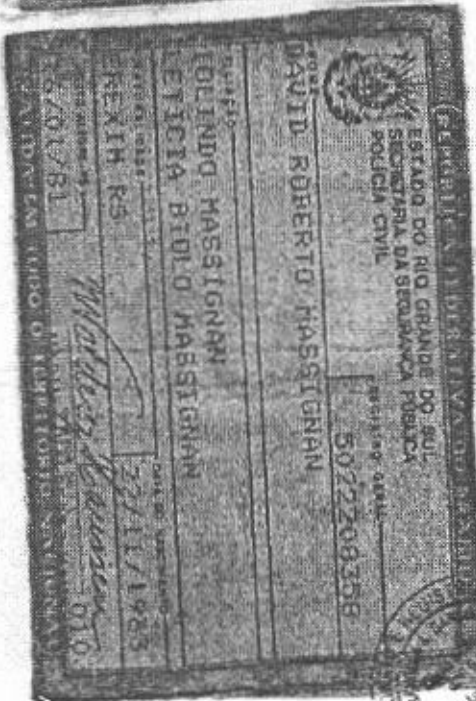 REPÚBLICA FEDERATIVA DO BRASIL
ESTADO DO RIO GRANDE DO SUL
SECRETARIA DA SEGURANÇA PÚBLICA
POLÍCIA CIVIL
REGISTRO GERAL
5022208358
NOME
DAVID ROBERTO MASSIGNAN
FILIAÇÃO
OLINDO MASSIGNAN
LETICIA BIOLO MASSIGNAN
EREXIM RS
22/11/1963
/01/81
010
VÁLIDA EM TODO O TERRITÓRIO NACIONAL